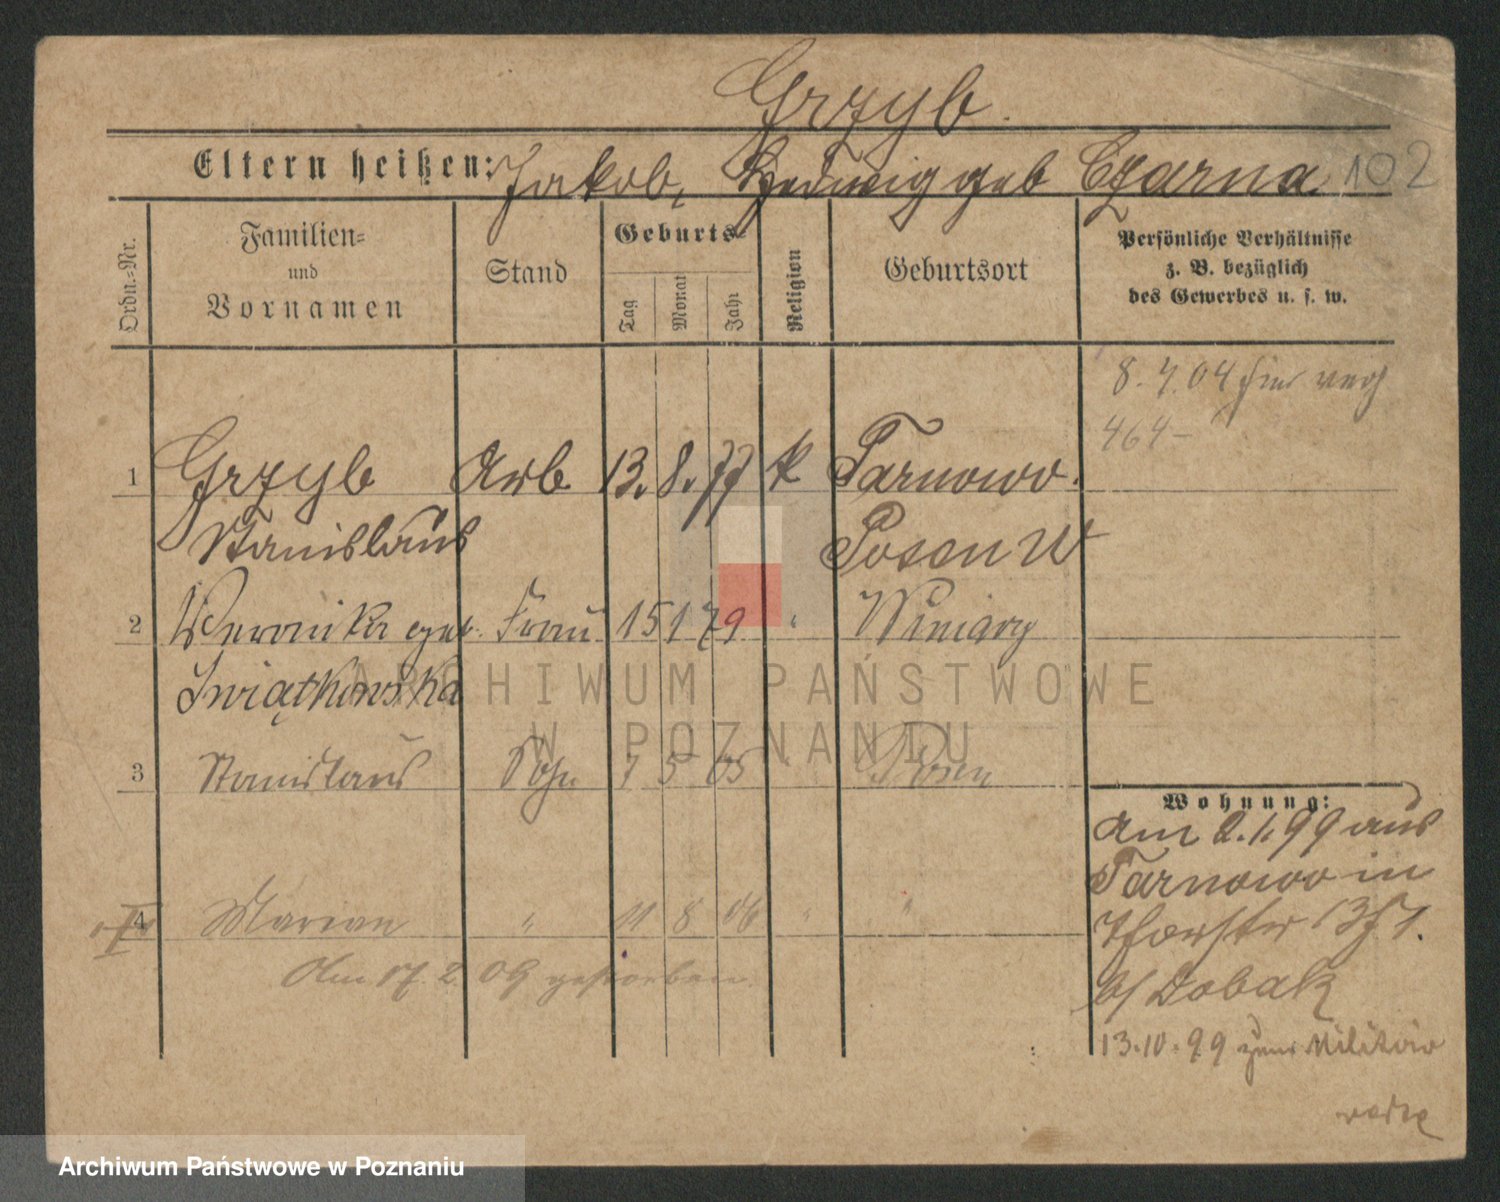 Grzyb.
Eltern heißen: Jakob, Hedwig geb Czarna 102
Ordn.-Nr.
Familien-
und
Vornamen
Stand
Geburts-
Tag
Monat
Jahr
Religion
Geburtsort
Persönliche Verhältnisse
z. B. bezüglich
des Gewerbes u. s. w.
8.7.04
464-
1 Grzyb Arb 13. 8. 77 k Tarnowo.
Stanislaus Posen W
2 Weronika geb. Frau 15 1 79 " Winiary
Świątkowska
3 Stanislaus Sohn 7 5 05 " Posen
4 Marian " 11 8 06 " "
Am 17. 2 09 gestorben.
Wohnung:
Am 2.1.99 aus
Tarnowo in
b/ Dobak
13.10.99 zum Militär
ARCHIWUM PAŃSTWOWE
W POZNANIU
Archiwum Państwowe w Poznaniu